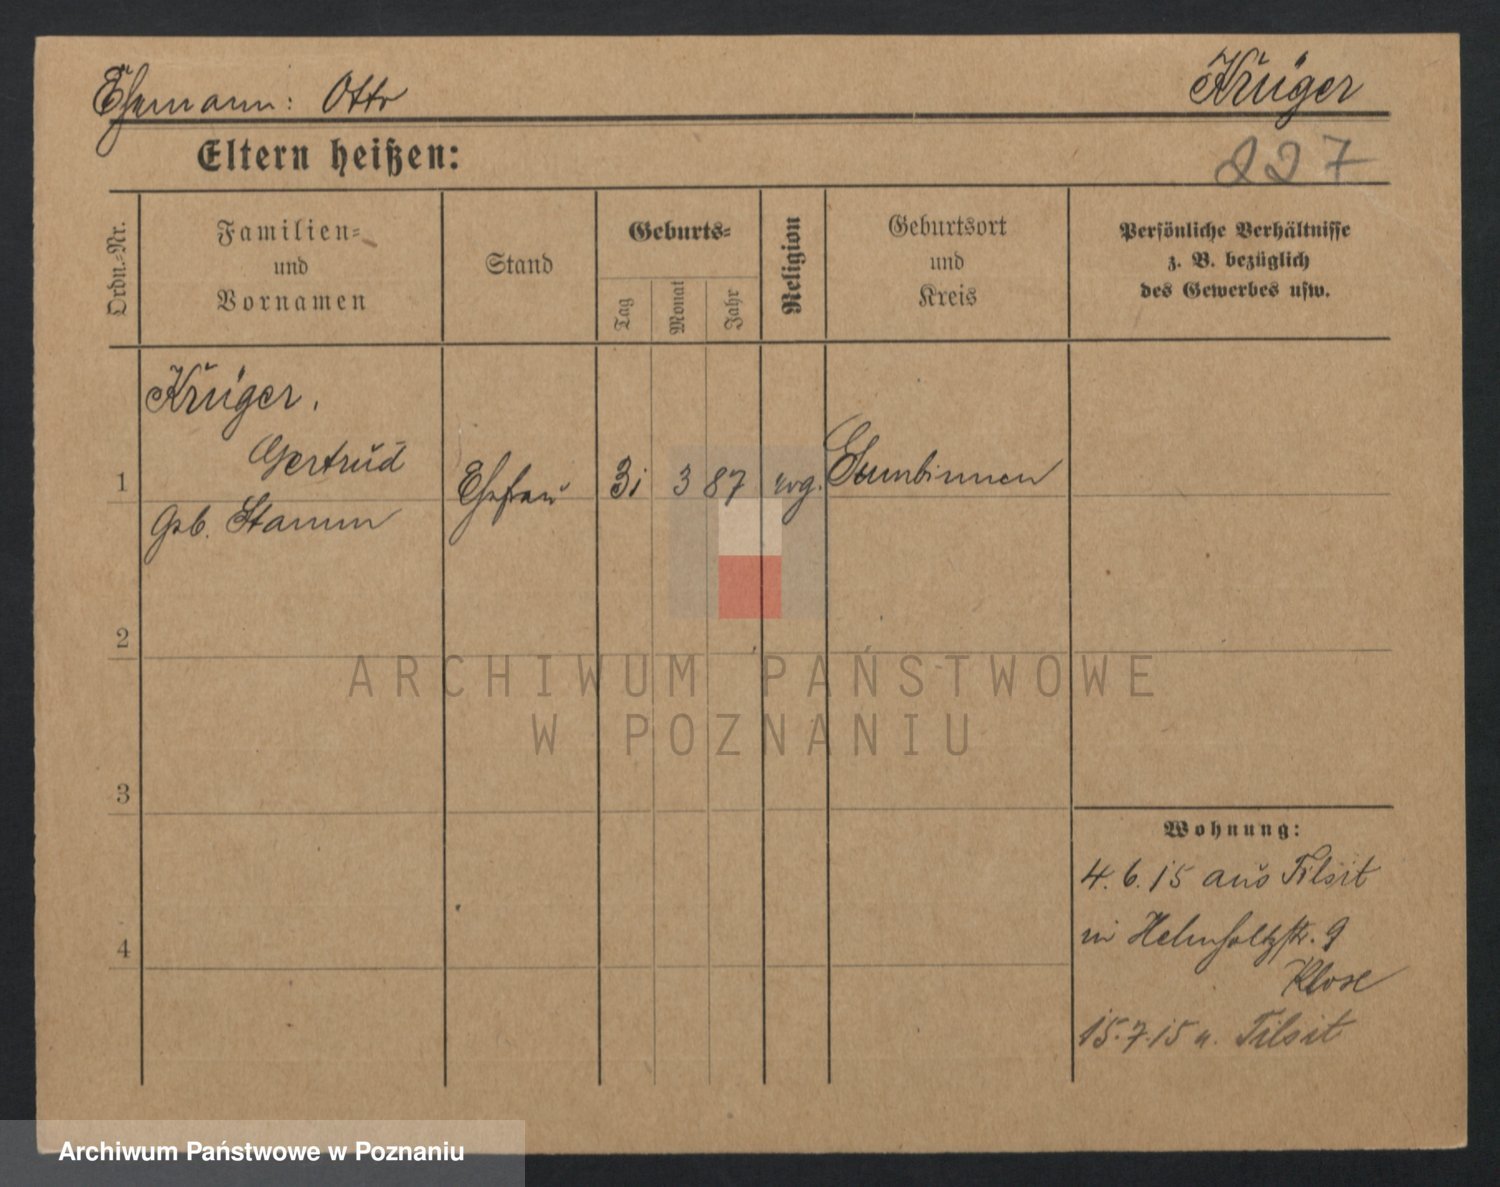 Ehemann: Otto
Krüger
227
Eltern heißen:
Ordn.-Nr.
Familien-
und
Vornamen
Stand
Geburts-
Tag
Monat
Jahr
Religion
Geburtsort
und
Kreis
Persönliche Verhältnisse
z. B. bezüglich
des Gewerbes usw.
Krüger,
Gertrud
1
Ehefrau
31
3
87
evg.
Gumbinnen
geb. Stamm
2
ARCHIWUM PAŃSTWOWE
W POZNANIU
3
4
Wohnung:
4.6.15 aus Tilsit
in Helmholtzstr. 9
Klose
15.7.15 n. Tilsit
Archiwum Państwowe w Poznaniu